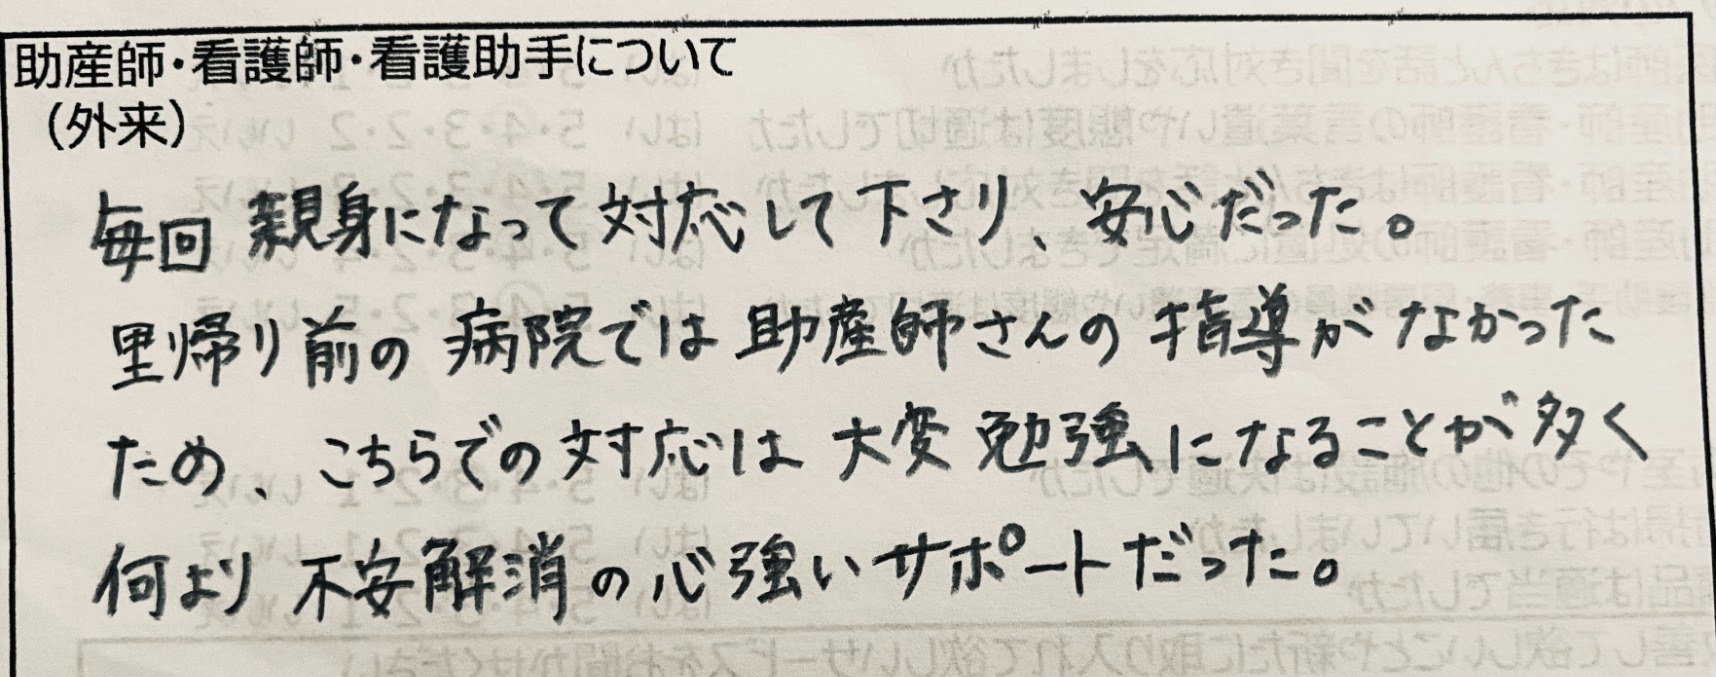 助産師・看護師・看護助手について
（外来）
毎回親身になって対応して下さり、安心だった。
里帰り前の病院では助産師さんの指導がなかった
ため、こちらでの対応は大変勉強になることが多く
何より不安解消の心強いサポートだった。